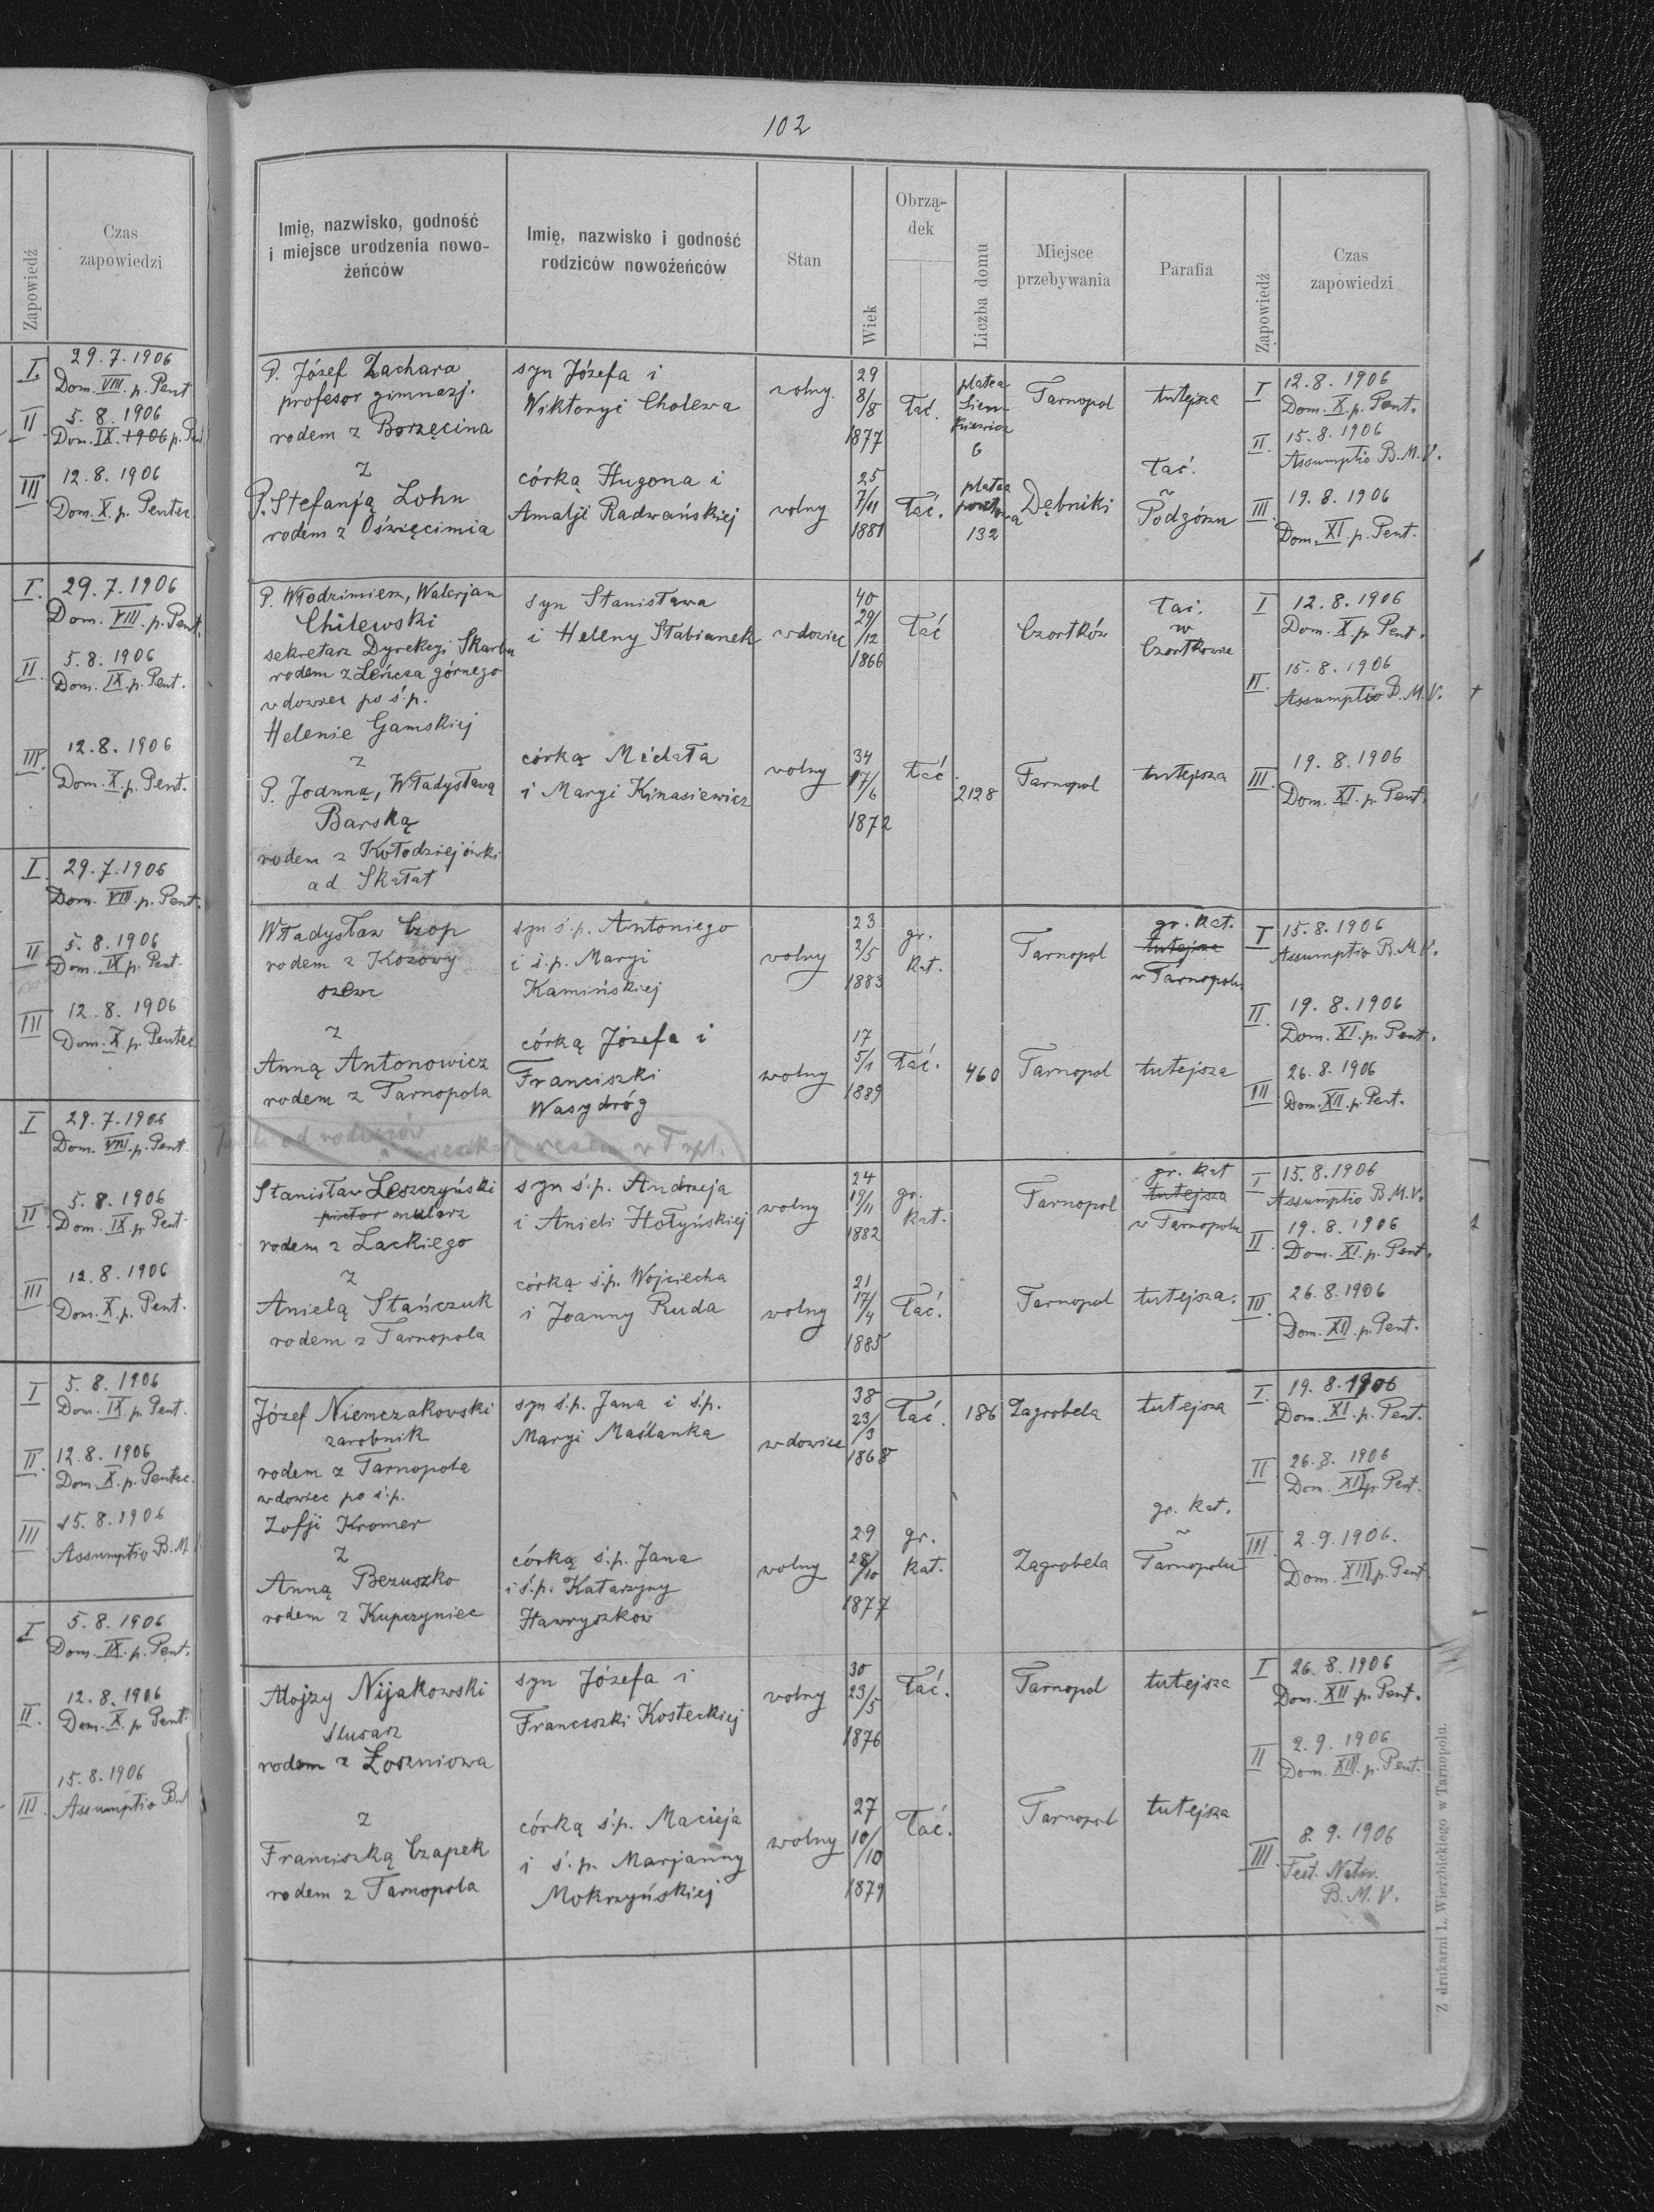 Zapowiedź
Czas
zapowiedzi
I
29.7.1906
Dom. VIII. p. Pent
II
5.8.1906
Dom. IX. 1906 p. Pent
III
12.8.1906
Dom. X. p. Pentec.
I.
29.7.1906
Dom. VIII. p. Pent.
II.
5.8.1906
Dom. IX. p. Pent.
III.
12.8.1906
Dom. X. p. Pent.
I.
29.7.1906
Dom. VIII. p. Pent.
II
5.8.1906
Dom. IX p. Pent.
III
12.8.1906
Dom. X. p. Pentec
I
29.7.1906
Dom. VIII. p. Pent.
II
5.8.1906
Dom. IX. p. Pent
III
12.8.1906
Dom. X. p. Pent.
I
5.8.1906
Dom. IX. p. Pent.
II
12.8.1906
Dom. X. p. Pentec.
III
15.8.1906
Assumptio B.M.
I
5.8.1906
Dom. IX. p. Pent.
II.
12.8.1906
Dom. X. p. Pent.
III.
15.8.1906
Assumptio B.M
102
Imię, nazwisko, godność
i miejsce urodzenia nowo-
żeńców
Imię, nazwisko i godność
rodziców nowożeńców
Stan
Wiek
Obrzą-
dek
Liczba domu
Miejsce
przebywania
Parafia
Zapowiedź
Czas
zapowiedzi
P. Józef Zachara
profesor gimnazj.
rodem z Borzęcina
syn Józefa i
Wiktoryi Cholewa
wolny.
29
8/8
1877
łać.
platea
Sien-
kiewicz
6
Tarnopol
tutejsza
I
12.8.1906
Dom. X. p. Pent.
II.
15.8.1906
Assumptio B.M.V.
z
P. Stefanją Lohn
rodem z Oświęcimia
córką Hugona i
Amalji Radwańskiej
wolny
25
7/11
1881
łać.
platea
132
Dębniki
łać.
w
Podgórzu
III.
19.8.1906
Dom. XI. p. Pent.
P. Włodzimierz, Walerjan
Chilewski
sekretarz Dyrekcyi Skarbu
rodem z Leńcza górnego
wdowiec po ś.p.
Helenie Gamskiej
syn Stanisława
i Heleny Słabianek
wdowiec
40
29/12
1866
łać
Czortków
łać.
w
Czortkowie
I
12.8.1906
Dom. X. p. Pent.
II.
15.8.1906
Assumptio B.M.V.
z
P. Joanną, Władysławą
Barską
rodem z Kołodziejówki
ad Skałat
córką Michała
i Maryi Kinasiewicz
wolny
34
17/6
1872
łać.
2128
Tarnopol
tutejsza
III.
19.8.1906
Dom. XI. p. Pent.
Władysław Czop
rodem z Kozowy
szewc
syn ś.p. Antoniego
i ś.p. Maryi
Kamińskiej
wolny
23
2/5
1883
gr.
kat.
Tarnopol
gr. kat.
tutejsza
w Tarnopolu
I
15.8.1906
Assumptio B.M.V.
II
19.8.1906
Dom. XI. p. Pent.
z
Anną Antonowicz
rodem z Tarnopola
córką Józefa i
Franciszki
Wasydróg
wolny
17
5/1
1889
łać.
460
Tarnopol
tutejsza
III
26.8.1906
Dom. XII. p. Pent.
od rodziców
razem w Trpl.
Stanisław Leszczyński
pictor mularz
rodem z Lackiego
syn ś.p. Andrzeja
i Anieli Hołyńskiej
wolny
24
19/11
1882
gr.
kat.
Tarnopol
gr. kat
tutejsza
w Tarnopolu
I
15.8.1906
Assumptio B.M.V.
II
19.8.1906
Dom. XI. p. Pent.
z
Anielą Stańczuk
rodem z Tarnopola
córką ś.p. Wojciecha
i Joanny Ruda
wolny
21
17/4
1885
łać.
Tarnopol
tutejsza.
III
26.8.1906
Dom. XII. p. Pent.
Józef Niemczakowski
zarobnik
rodem z Tarnopola
wdowiec po ś.p.
Zofji Kromer
syn ś.p. Jana i ś.p.
Maryi Maślanka
wdowiec
38
23/3
1868
łać.
186
Zagrobela
tutejsza
I.
19.8.1906
Dom. XI. p. Pent.
II
26.8.1906
Dom. XII p. Pent.
z
Anną Bezuszko
rodem z Kupczyniec
córką ś.p. Jana
i ś.p. Katarzyny
Hawryszków
wolny
29
28/10
1877
gr.
kat.
Zagrobela
gr. kat.
w
Tarnopolu
III
2.9.1906.
Dom. XIII p. Pent
Alojzy Nijakowski
ślusarz
rodem z Łoszniowa
syn Józefa i
Franciszki Kosteckiej
wolny
30
23/5
1876
łać.
Tarnopol
tutejsza
I
26.8.1906
Dom. XII p. Pent.
II
2.9.1906
Dom. XIII. p. Pent.
z
Franciszką Czapek
rodem z Tarnopola
córką ś.p. Macieja
i ś.p. Marjanny
Mokrzyńskiej
wolny
27
10/10
1879
łać.
Tarnopol
tutejsza
III.
8.9.1906
Fest. Nativ.
B.M.V.
Z drukarni L. Wierzbickiego w Tarnopolu.